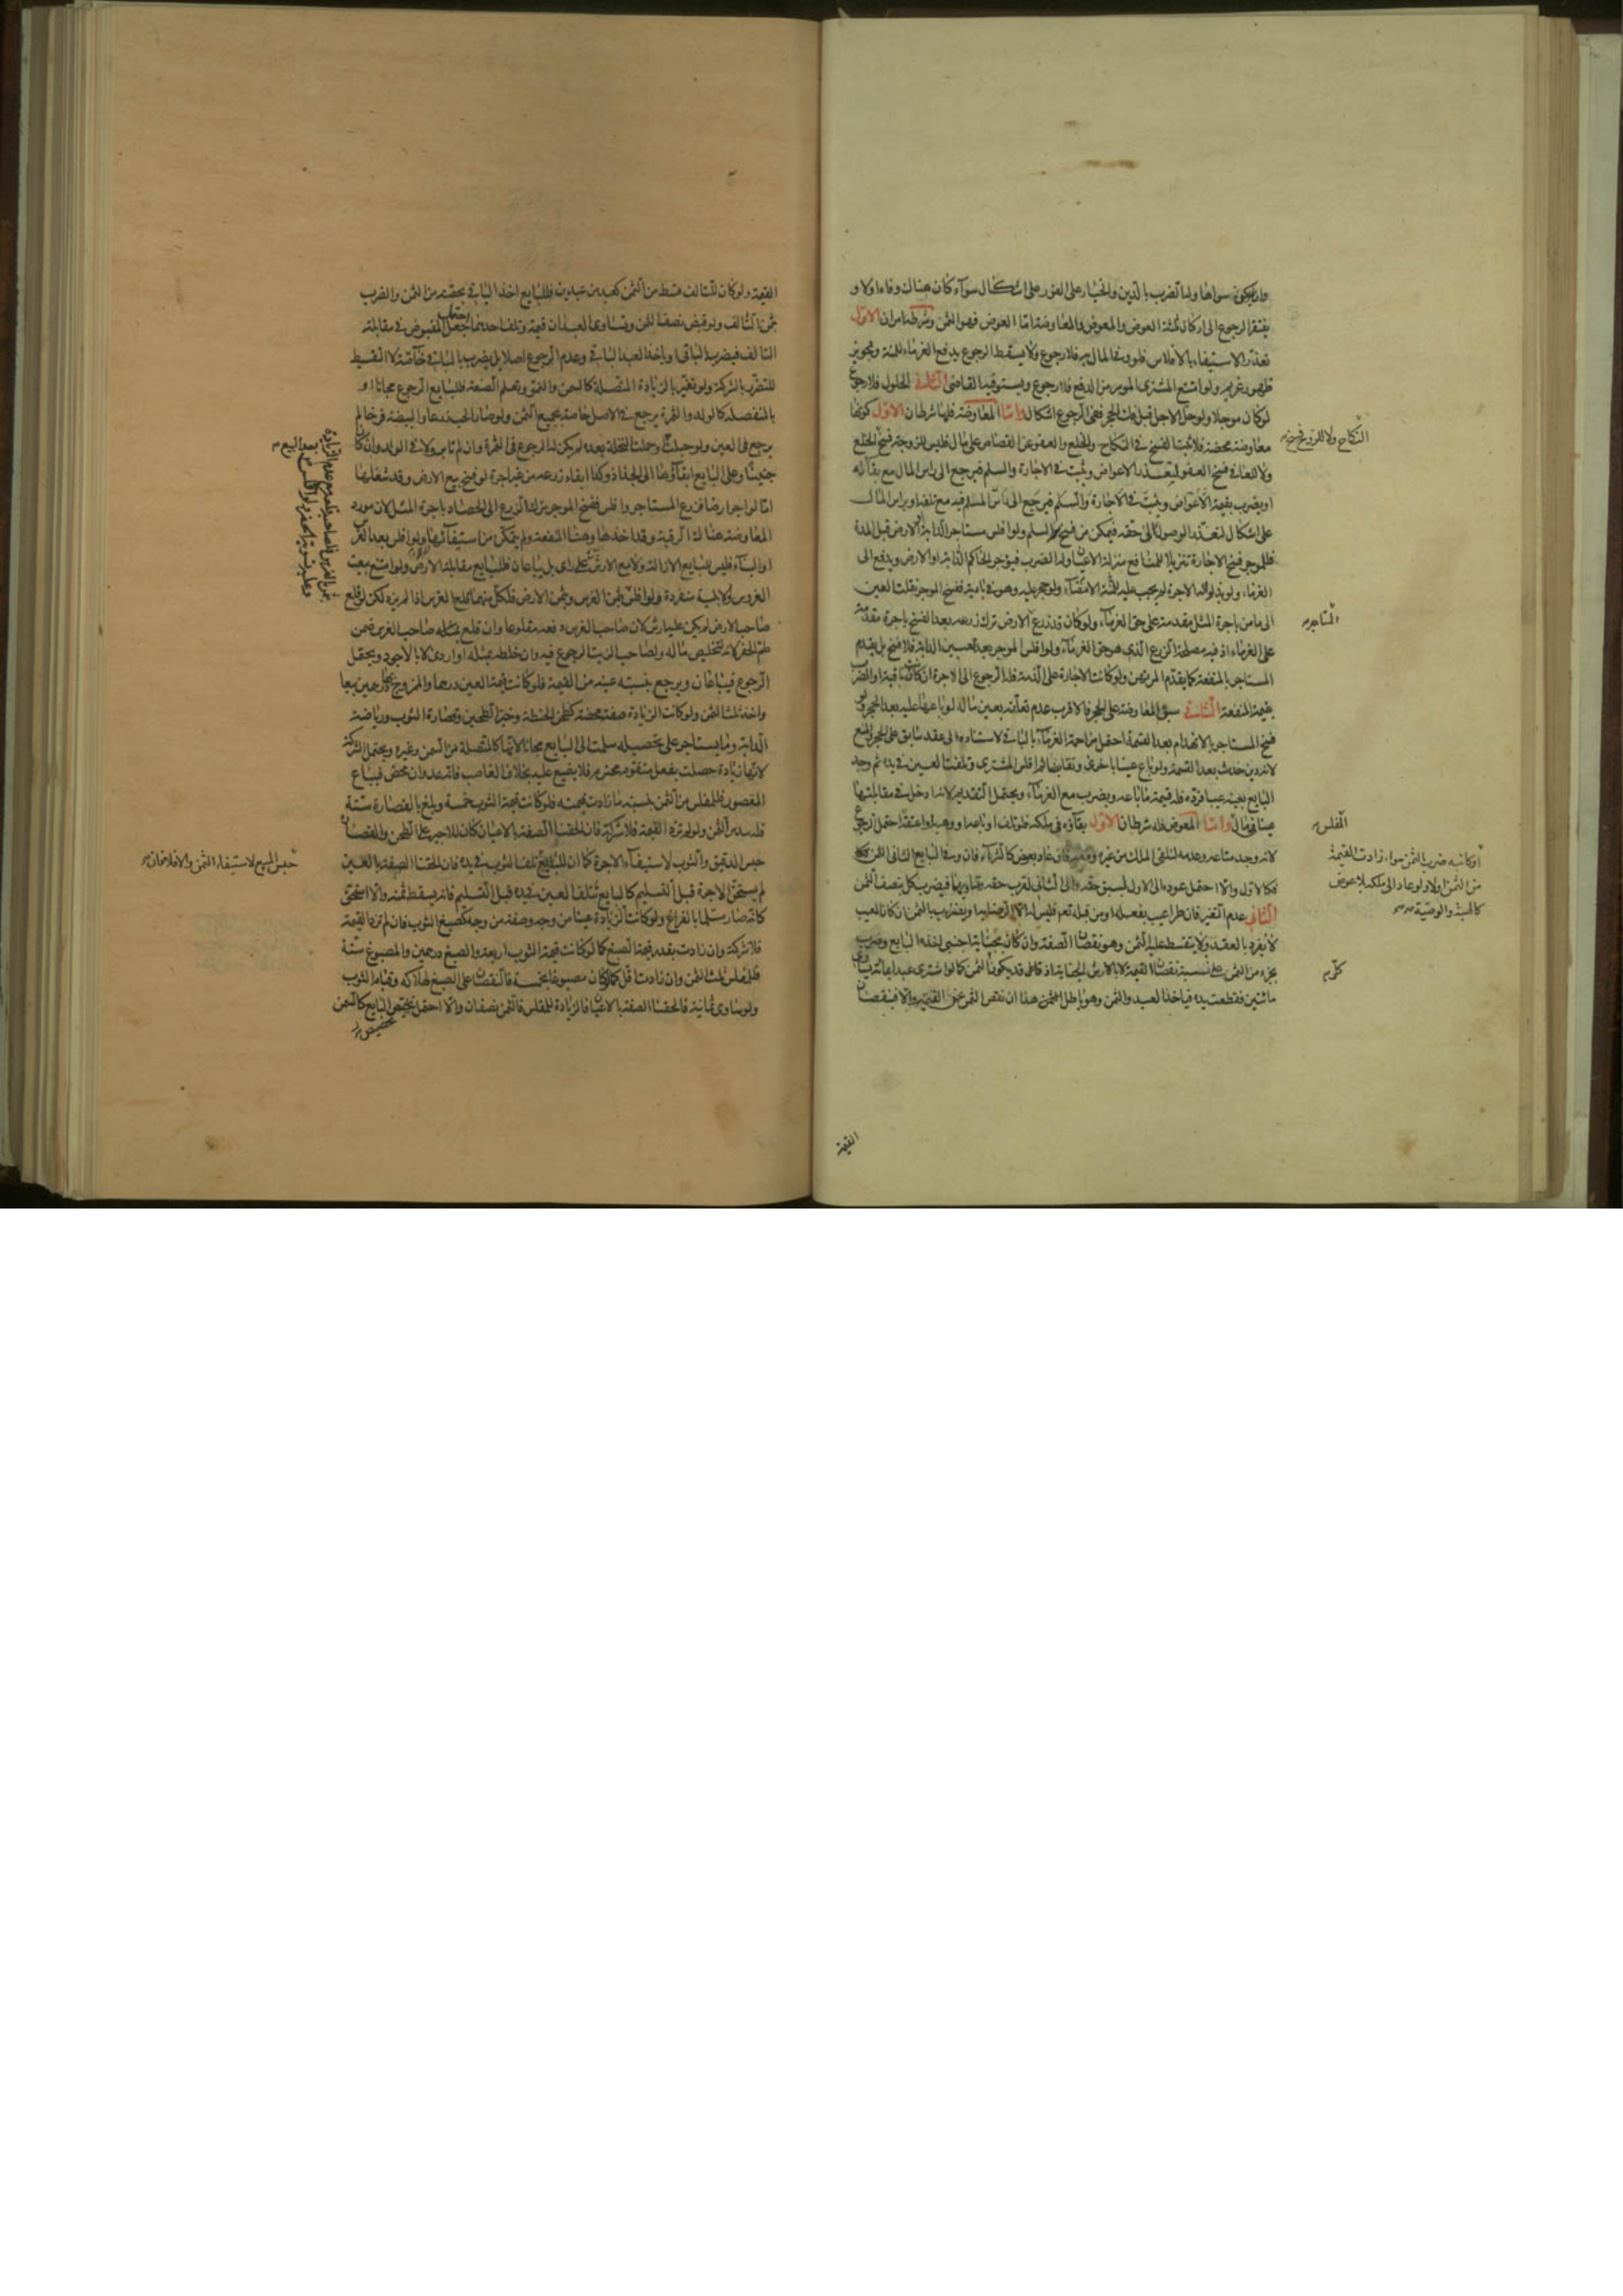 وان لم يكن سواها وله الضرب بالدين والخيار على الفور على اشكال سواء كان هناك وفاء اولا و
يفتقر الرجوع الى اركان ثلثة العوض والمعوض والمعاوضة اما العوض فهو الثمن وشرطه امران الاول
تعذر الاستيفاء بالافلاس فلو وفى المال به فلا رجوع ولا يسقط الرجوع بدفع الغرماء للمنة وتجويز
ظهور غريم ولو امتنع المشترى الموسر من الدفع فلا رجوع ويستوفيه القاضى الثانى الحلول فلا رجوع
لو كان موجلا ولو حل الاجل قبل فك الحجر ففى الرجوع اشكال واما المعاوضة فلها شرطان الاول كونها
معاوضة محضة فلا يثبت الفسخ فى النكاح والخلع والعفو عن القصاص على مال فليس للزوجة فسخ الخلع
ولا للعافى فسخ العفو لتعذر الاعواض ويثبت فى الاجارة والسلم فيرجع الى راس المال مع بقائه
او يضرب بقيمة الاعواض ويثبت فى الاجارة والسلم فيرجع الى راس المسلم فيه مع تلفه او براس المال
على اشكال لتعذر الوصول الى حقه فيمكن من فسخ السلم ولو افلس مستاجر الدابة او الارض قبل المدة
فللموجر فسخ الاجارة تنزيلا للمنافع منزلة الاعيان وله الضرب فيؤجر الحاكم الدابة او الارض ويدفع الى
الغرماء ولو بذلوا له الاجرة لم يجب عليه الامضاء ولو حجر عليه وهو فى بادية ففسخ الموجر نقلت العين
الى مامن باجرة المثل مقدمة على حق الغرماء ولو كان قد زرع الارض ترك زرعه بعد الفسخ باجرة مقدمة
على الغرماء اذ فيه مصلحة الزرع الذى هو حق الغرماء ولو افلس الموجر بعد تعيين الدابة فلا فسخ بل يقدم
المستاجر بالمنفعة كما يقدم المرتهن ولو كانت الاجارة على الذمة فله الرجوع الى الاجرة ان كانت باقية او الضرب
بقيمة المنفعة الثانى سبق المعاوضة على الحجر فالاقرب عدم تعلقه بعين ماله لو باعها عليه بعد الحجر ولو
فسخ المستاجر بالانهدام بعد القسمة احتمل مزاحمة الغرماء بالباقى لاستناده الى عقد سابق على الحجر والمنع
لانه دين حدث بعد القسمة ولو باع عينا باخرى وتقابضا ثم افلس المشترى وتلفت العين فى يده ثم وجد
البايع بعينه عيبا فرده فله قيمة ما باعه ويضرب مع الغرماء ويحتمل التقديم لانه ادخل فى مقابلتها
عينا فى مال واما المعوض فله شرطان الاول بقاؤه فى ملكه فلو تلف او باعه او وهبه او اعتقه احتمل الرجوع
لانه وجد متاعه وعدمه لتلقى الملك من غيره فان عاد بعوض كالشراء فان وفى البايع الثانى الثمن
فكالاول والا احتمل عوده الى الاول لسبق حقه والى الثانى لقرب حقه وتساويهما فيضرب كل بنصف الثمن
الثانى عدم التغير فان طرا عيب بفعله او من قبله تعالى فليس له الا الرضا به او يضرب بالثمن ان كان العيب
لا يفرد بالعقد ولا يتقسط عليه الثمن وهو نقصان الصفة وان كان بجناية اجنبى اخذه البايع وضرب
بجزء من الثمن على نسبة نقصان القيمة لا بالارش الجناية اذ قد يكون الثمن كما لو اشترى عبدا بمائة يساوى
مائتين فقطعت يده فياخذ العبد والثمن وهو باطل هذا ان نقص الثمن عن القيمة والا فبنقصان
المستاجر
المفلس
او كاتبه ضرب بالثمن سواء زادت القيمة
من الثمن او لا ولو عاد الى ملكه بلا عوض
كالهبة والوصية
كل
القيمة
القيمة ولو كان للتالف قسط من الثمن كعبد من عبدين فللبايع اخذ الباقى بحصته من الثمن والضرب
بثمن التالف ولو قبض نصف الثمن وتساوى العبدان قيمة وتلف احدهما احتمل جعل المقبوض فى مقابلة
التالف فيضرب بالباقى او ياخذ العبد الباقى وعدم الرجوع اصلا بل يضرب بالباقى خاصة لا التقسيط
للتضرر بالشركة ولو تغير بالزيادة المتصلة كالسمن والنمو وتعلم الصنعة فللبايع الرجوع مجانا او
بالمنفصلة كالولد والثمرة يرجع فى الاصل خاصة بجميع الثمن ولو صار الحب زرعا والبيضة فرخا لم
يرجع فى العين ولو حبلت او حملت النخلة بعده لم يكن له الرجوع فى الثمرة وان لم تابر ولا فى الولد وان كان
جنينا وعلى البايع ابقاؤها الى الجذاذ وكذا ابقاء زرعه من غير اجرة لو فسخ بيع الارض وقد شغلها
اما لو اجر ارضا فزرع المستاجر وافلس ففسخ الموجر ترك الزرع الى الحصاد باجرة المثل لان مورد
المعاوضة هناك الرقبة وقد اخذها وهنا المنفعة ولم يتمكن من استيفائها ولو افلس بعد الغرس
او البناء فليس للبايع الازالة ولا مع الارش على راى بل يباعان فللبايع مقابلة الارض ولو امتنع بيعت
الغروس والابنية منفردة ولو افلس بثمن الغرس وبثمن الارض فلكل منهما قلع الغرس اذا لم يزد لكن لو قلع
صاحب الارض لم يكن عليه ارش لان صاحب الغرس دفعه مقلوعا وان قلع صاحب الغرس ضمن
طم الحفر لانه لتخليص ماله ولصاحب الزيت الرجوع فيه وان خلطه بمثله او اردى لا بالاجود ويحتمل
الرجوع فيباعان ويرجع بنسبة عينه من القيمة فلو كانت قيمة العين درهما والممزوج به درهمين بيعا
واخذ ثلث الثمن ولو كانت الزيادة صفة محضة كطحن الحنطة وخبز الطحين وقصارة الثوب ورياضة
الدابة وما يستاجر على تحصيله سلمت الى البايع مجانا لانها كالمتصلة من السمن وغيره ويحتمل الشركة
لانها زيادة حصلت بفعل متقوم محترم فلا يضيع عليه بخلاف الغاصب فانه عدوان محض فيباع
المقصور فللمفلس من الثمن بنسبة ما زادت قيمته فلو كانت قيمة الثوب خمسة وبلغ بالقصارة ستة
فله سدس الثمن ولو لم تزد القيمة فلا شركة فان الحقنا الصفة بالاعيان كان للاجير على الطحن والقصارة
حبس الدقيق والثوب لاستيفاء الاجرة كما ان للبايع تلف الثوب فى يده فان الحقنا الصفة بالعين
لم يستحق الاجرة قبل التسليم كالبايع تتلف العين فى يده قبل التسليم فانه يسقط ثمنه والا استحق
كانه صار مسلما بالفراغ ولو كانت الزيادة عينا من وجه وصفة من وجه كصبغ الثوب فان لم تزد القيمة
فلا شركة وان زادت بقدر قيمة الصبغ كما لو كانت قيمة الثوب اربعة والصبغ درهمين والمصبوغ ستة
فللمفلس ثلث الثمن وان زادت اقل كما لو كان مصبوغا بخمسة فالنقصان على الصبغ لهلاكه وقيام الثوب
ولو ساوى ثمانية فالحقنا الصفة بالاعيان فالزيادة للمفلس فالثمن نصفان والا احتمل تخصيص البايع كالسمن
تخصيص
حبس المبيع لاستيفاء الثمن والا فلا فان